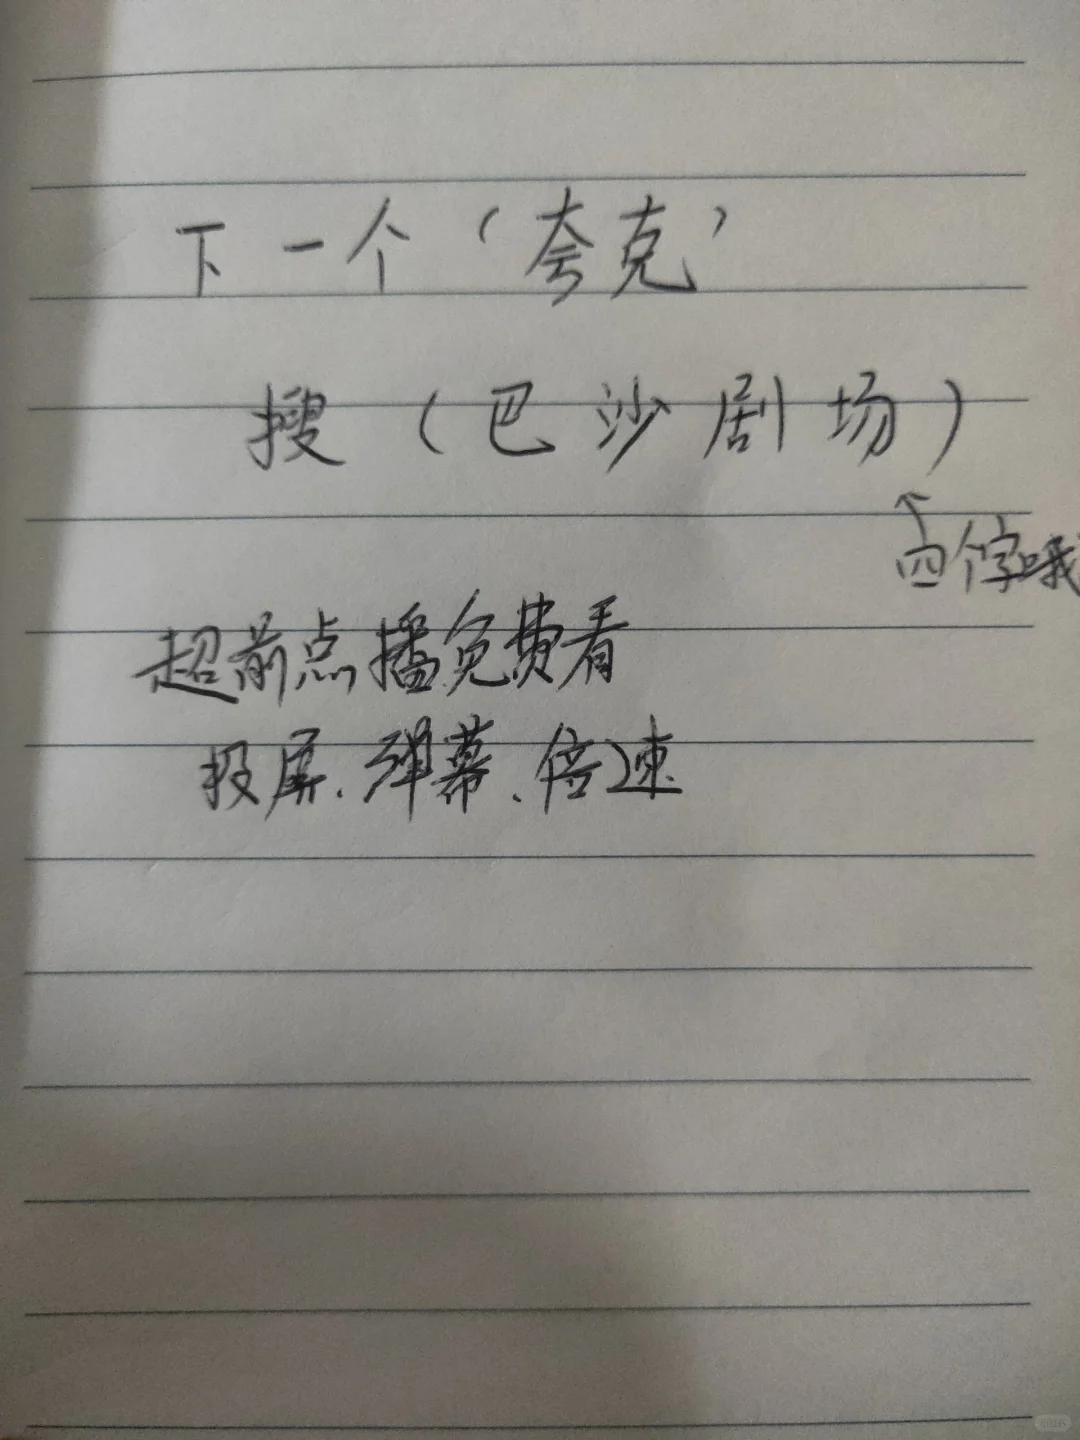 下一个（夸克）
搜（巴沙剧场）
四个字哦
超前点播免费看
投屏、弹幕、倍速